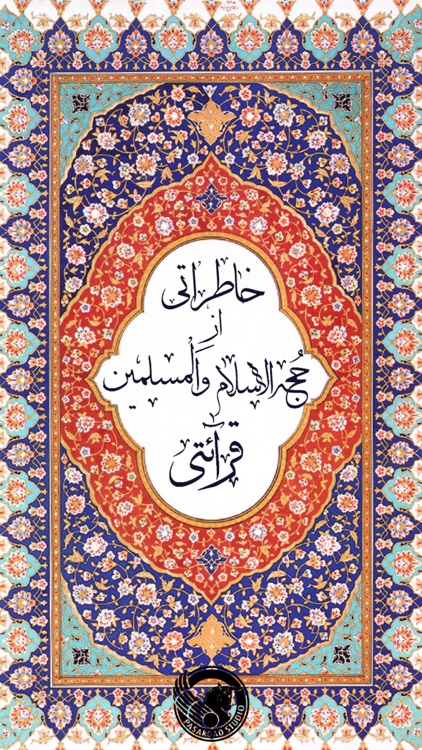 خاطراتی
از
حُجة الاسلام وَالْمسلمین
قرائتی
PASARGAD STUDIO